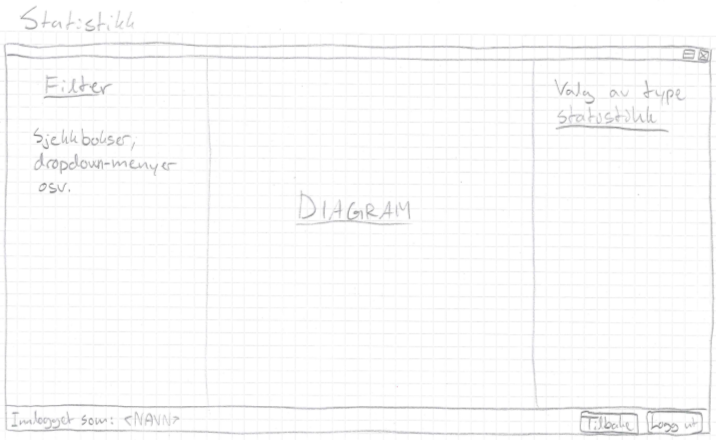 Statistikk
Filter
Sjekkbokser,
dropdown-menyer
osv.
DIAGRAM
Valg av type
statistikk
Innlogget som: <NAVN>
Tilbake
Logg ut